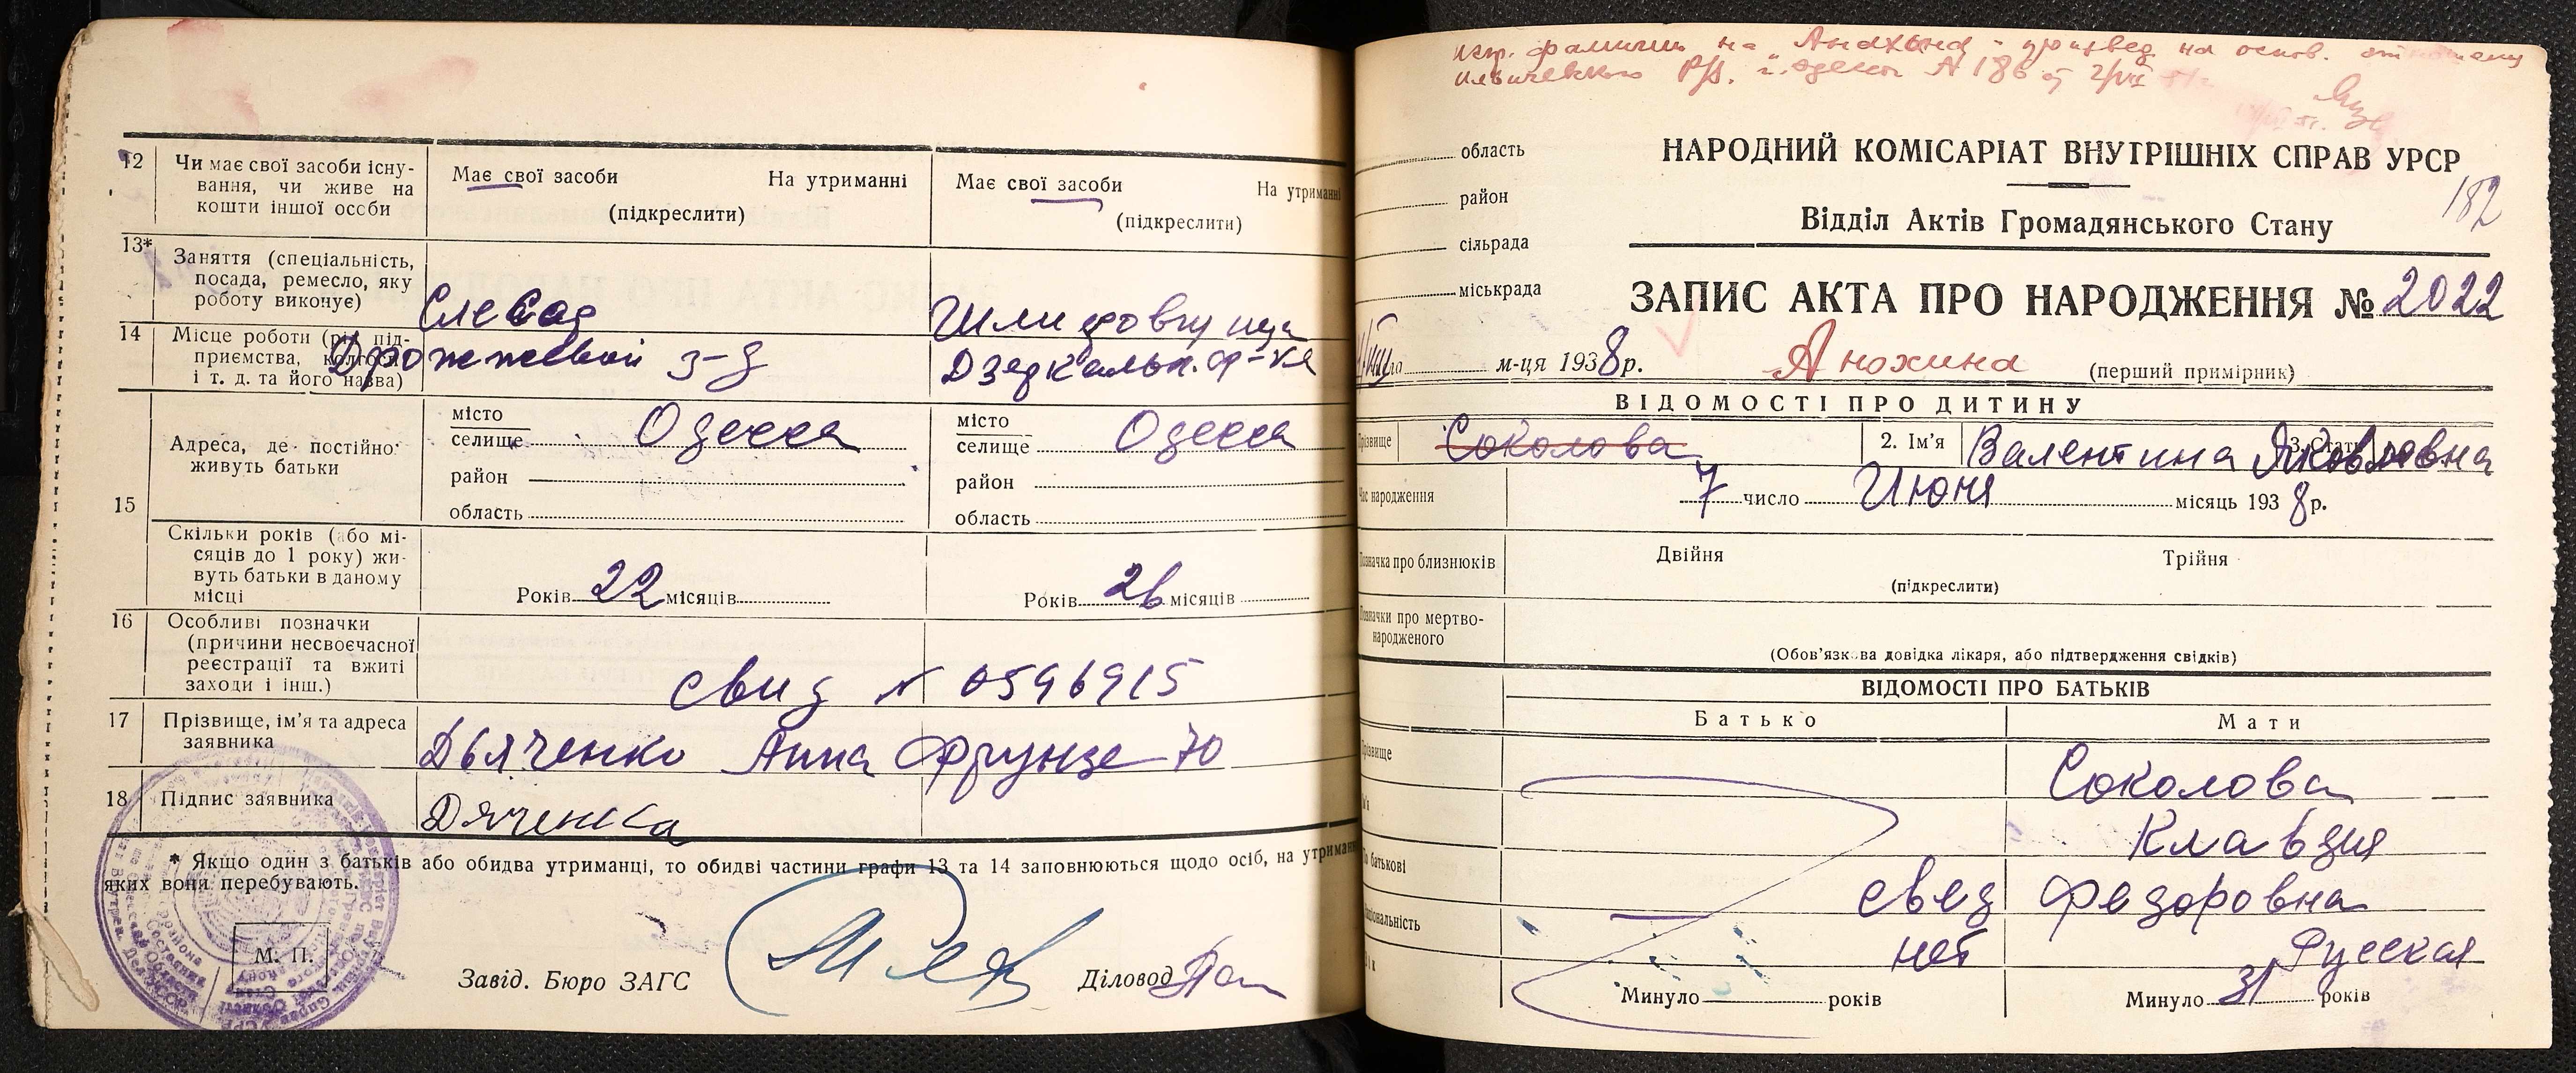 12 Чи має свої засоби існування, чи живе на кошти іншої особи
Має свої засоби На утриманні
(підкреслити)
Має свої засоби На утриманні
(підкреслити)
13* Заняття (спеціальність, посада, ремесло, яку роботу виконує)
Слесар
Шлифовщица
14 Місце роботи (рід підприємства, колгоспу і т. д. та його назва)
Дрожжевой з-д
Дзеркальн. ф-ка
15 Адреса, де постійно живуть батьки
місто
селище Одесса
район
область
місто
селище Одесса
район
область
Скільки років (або місяців до 1 року) живуть батьки в даному місці
Років 22 місяців
Років 26 місяців
16 Особливі позначки (причини несвоєчасної реєстрації та вжиті заходи і інш.)
Свид N 0596915
17 Прізвище, ім'я та адреса заявника
Дьяченко Анна Фрунзе 70
18 Підпис заявника
Дяченка
* Якщо один з батьків або обидва утриманці, то обидві частини графи 13 та 14 заповнюються щодо осіб, на утриманні
яких вони перебувають.
М. П.
Завід. Бюро ЗАГС
Діловод
испр. фамилии на "Анохина" произвед на основ.
Ильичевского Р/А. г. Одессы № 186 от 2/VII
область
район
сільрада
міськрада
НАРОДНИЙ КОМІСАРІАТ ВНУТРІШНІХ СПРАВ УРСР
182
Відділ Актів Громадянського Стану
ЗАПИС АКТА ПРО НАРОДЖЕННЯ № 2022
м-ця 1938 р.
Анохина
(перший примірник)
ВІДОМОСТІ ПРО ДИТИНУ
Прізвище Соколова 2. Ім'я Валентина Яковлевна 3. Стать
Час народження 7 число Июня місяць 1938 р.
Позначка про близнюків Двійня Трійня
(підкреслити)
Позначки про мертвонародженого
(Обов'язкова довідка лікаря, або підтвердження свідків)
ВІДОМОСТІ ПРО БАТЬКІВ
Батько Мати
Прізвище Соколова
Ім'я Клавдия
По батькові свед Федоровна
Національність нет Русская
Вік Минуло років Минуло 31 років